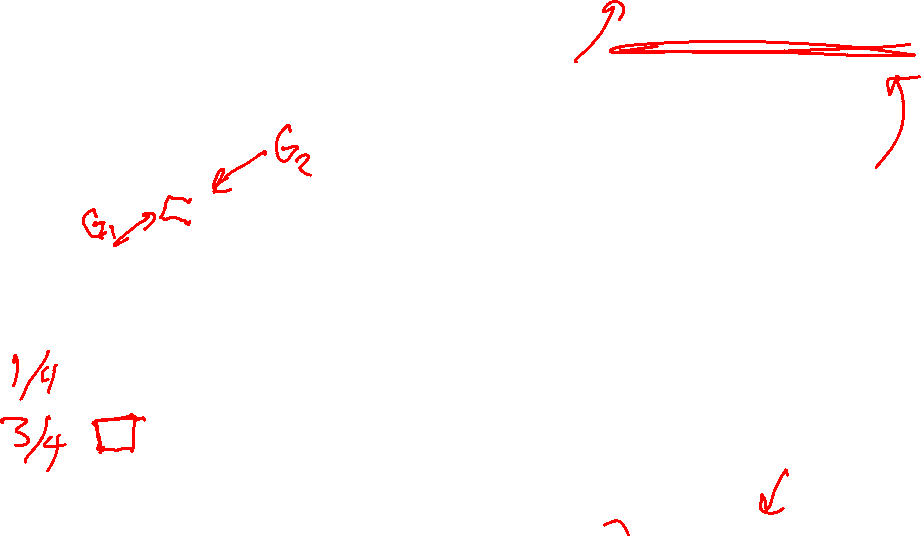 G2
G1
1/4
3/4